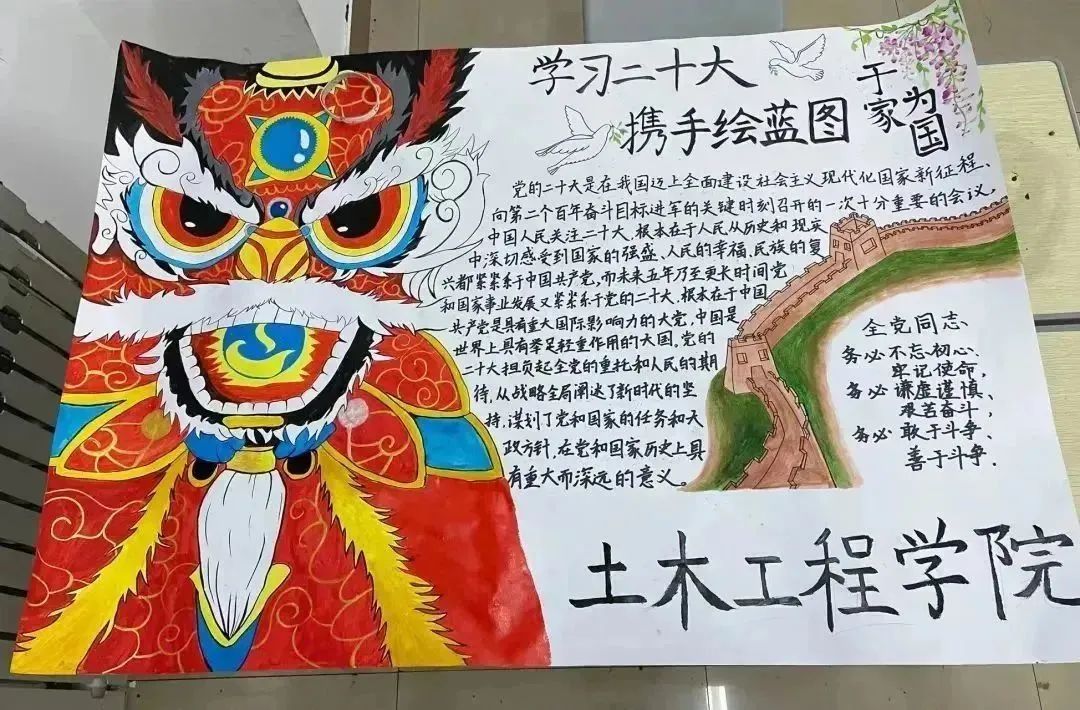 学习二十大
携手绘蓝图
于家
为国
党的二十大是在我国迈上全面建设社会主义现代化国家新征程、
向第二个百年奋斗目标进军的关键时刻召开的一次十分重要的会议。
中国人民关注二十大、根本在于人民从历史和现实
中深切感受到国家的强盛、人民的幸福、民族的复
兴都紧紧系于中国共产党,而未来五年乃至更长时间党
和国家事业发展又紧紧系于党的二十大、根本在于中国
共产党是具有重大国际影响力的大党,中国是
世界上具有举足轻重作用的大国,党的
二十大担负起全党的重托和人民的期
待,从战略全局阐达了新时代的坚
持,谋划了党和国家的任务和大
政方针,在党和国家历史上具
有重大而深远的意义。
全党同志、
务必不忘初心、
牢记使命,
务必谦虚谨慎、
艰苦奋斗,
务必敢于斗争、
善于斗争.
土木工程学院